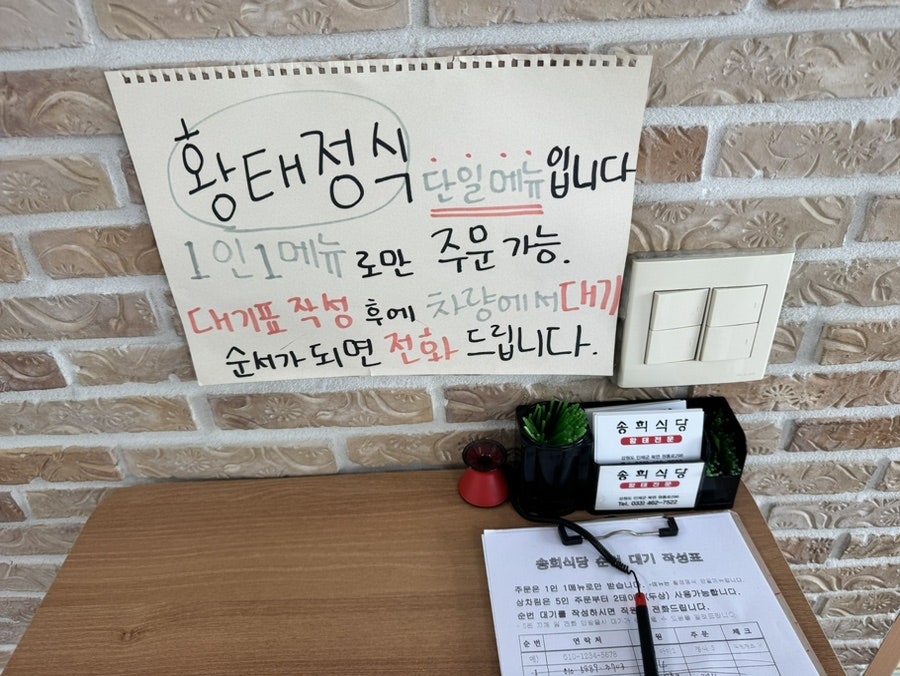 황태정식 단일메뉴입니다
1인1메뉴로만 주문가능.
대기표 작성 후에 차량에서 대기
순서가 되면 전화 드립니다.
송희식당
황태전문
송희식당
황태전문
강원도 인제군 북면 원통로
Tel. 033) 462-7522
송희식당 순번 대기 작성표
주문은 1인 1메뉴로만 받습니다.
상차림은 5인 주문부터 (두상) 사용가능합니다.
순번 대기를 작성하시면 전화드립니다.
순번 연락처 주문 체크
예) 010-1234-5678